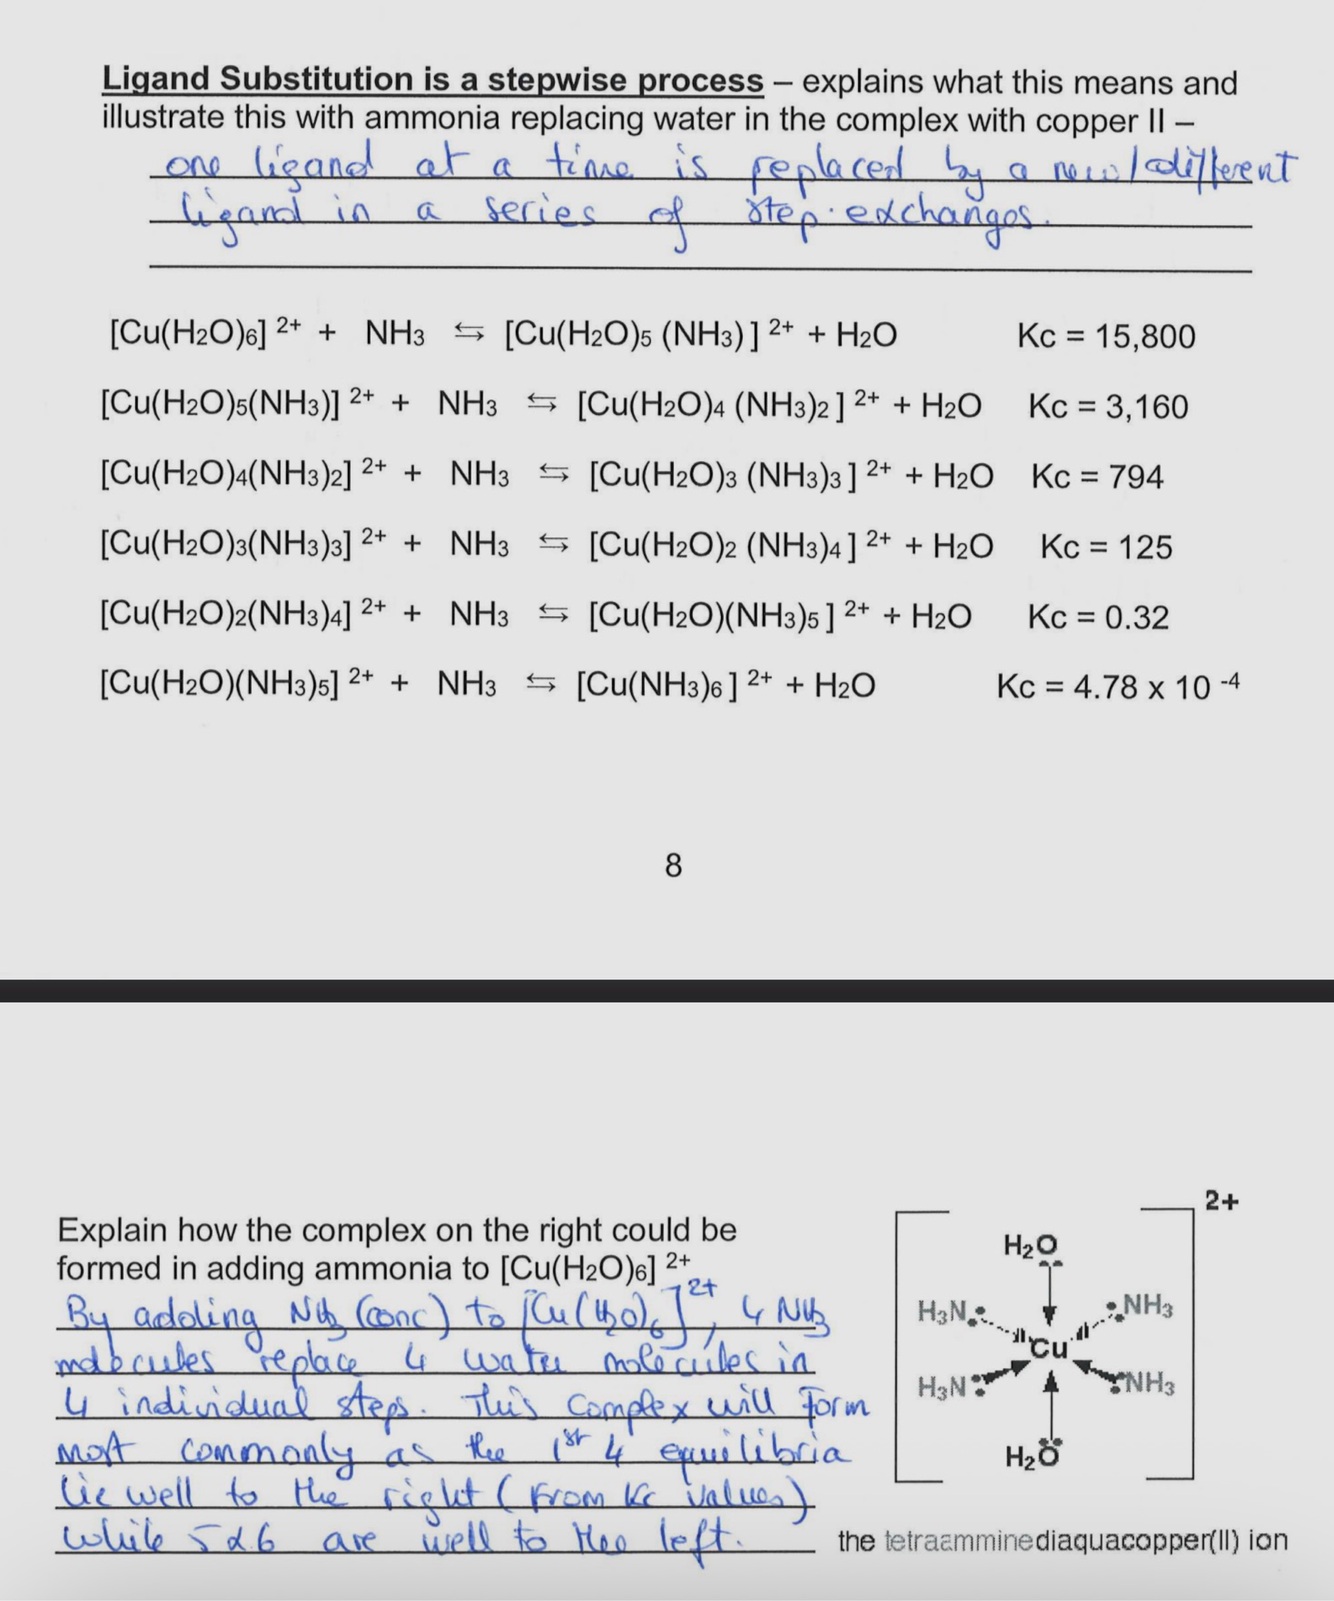 Ligand Substitution is a stepwise process – explains what this means and
illustrate this with ammonia replacing water in the complex with copper II –
one ligand at a time is replaced by a new/different
ligand in a series of step exchanges.
[Cu(H2O)6] 2+ + NH3 ⇆ [Cu(H2O)5 (NH3) ] 2+ + H2O Kc = 15,800
[Cu(H2O)5(NH3)] 2+ + NH3 ⇆ [Cu(H2O)4 (NH3)2 ] 2+ + H2O Kc = 3,160
[Cu(H2O)4(NH3)2] 2+ + NH3 ⇆ [Cu(H2O)3 (NH3)3 ] 2+ + H2O Kc = 794
[Cu(H2O)3(NH3)3] 2+ + NH3 ⇆ [Cu(H2O)2 (NH3)4 ] 2+ + H2O Kc = 125
[Cu(H2O)2(NH3)4] 2+ + NH3 ⇆ [Cu(H2O)(NH3)5 ] 2+ + H2O Kc = 0.32
[Cu(H2O)(NH3)5] 2+ + NH3 ⇆ [Cu(NH3)6 ] 2+ + H2O Kc = 4.78 x 10 -4
8
Explain how the complex on the right could be
formed in adding ammonia to [Cu(H2O)6] 2+
By adding NH3 (conc) to [Cu(H2O)6]2+, 4 NH3
molecules replace 4 water molecules in
4 individual steps. This complex will form
most commonly as the 1st 4 equilibria
lie well to the right (from Kc values)
while 5 & 6 are well to the left.
2+
H2O
H3N: :NH3
Cu
H3N: :NH3
H2O
the tetraamminediaquacopper(II) ion